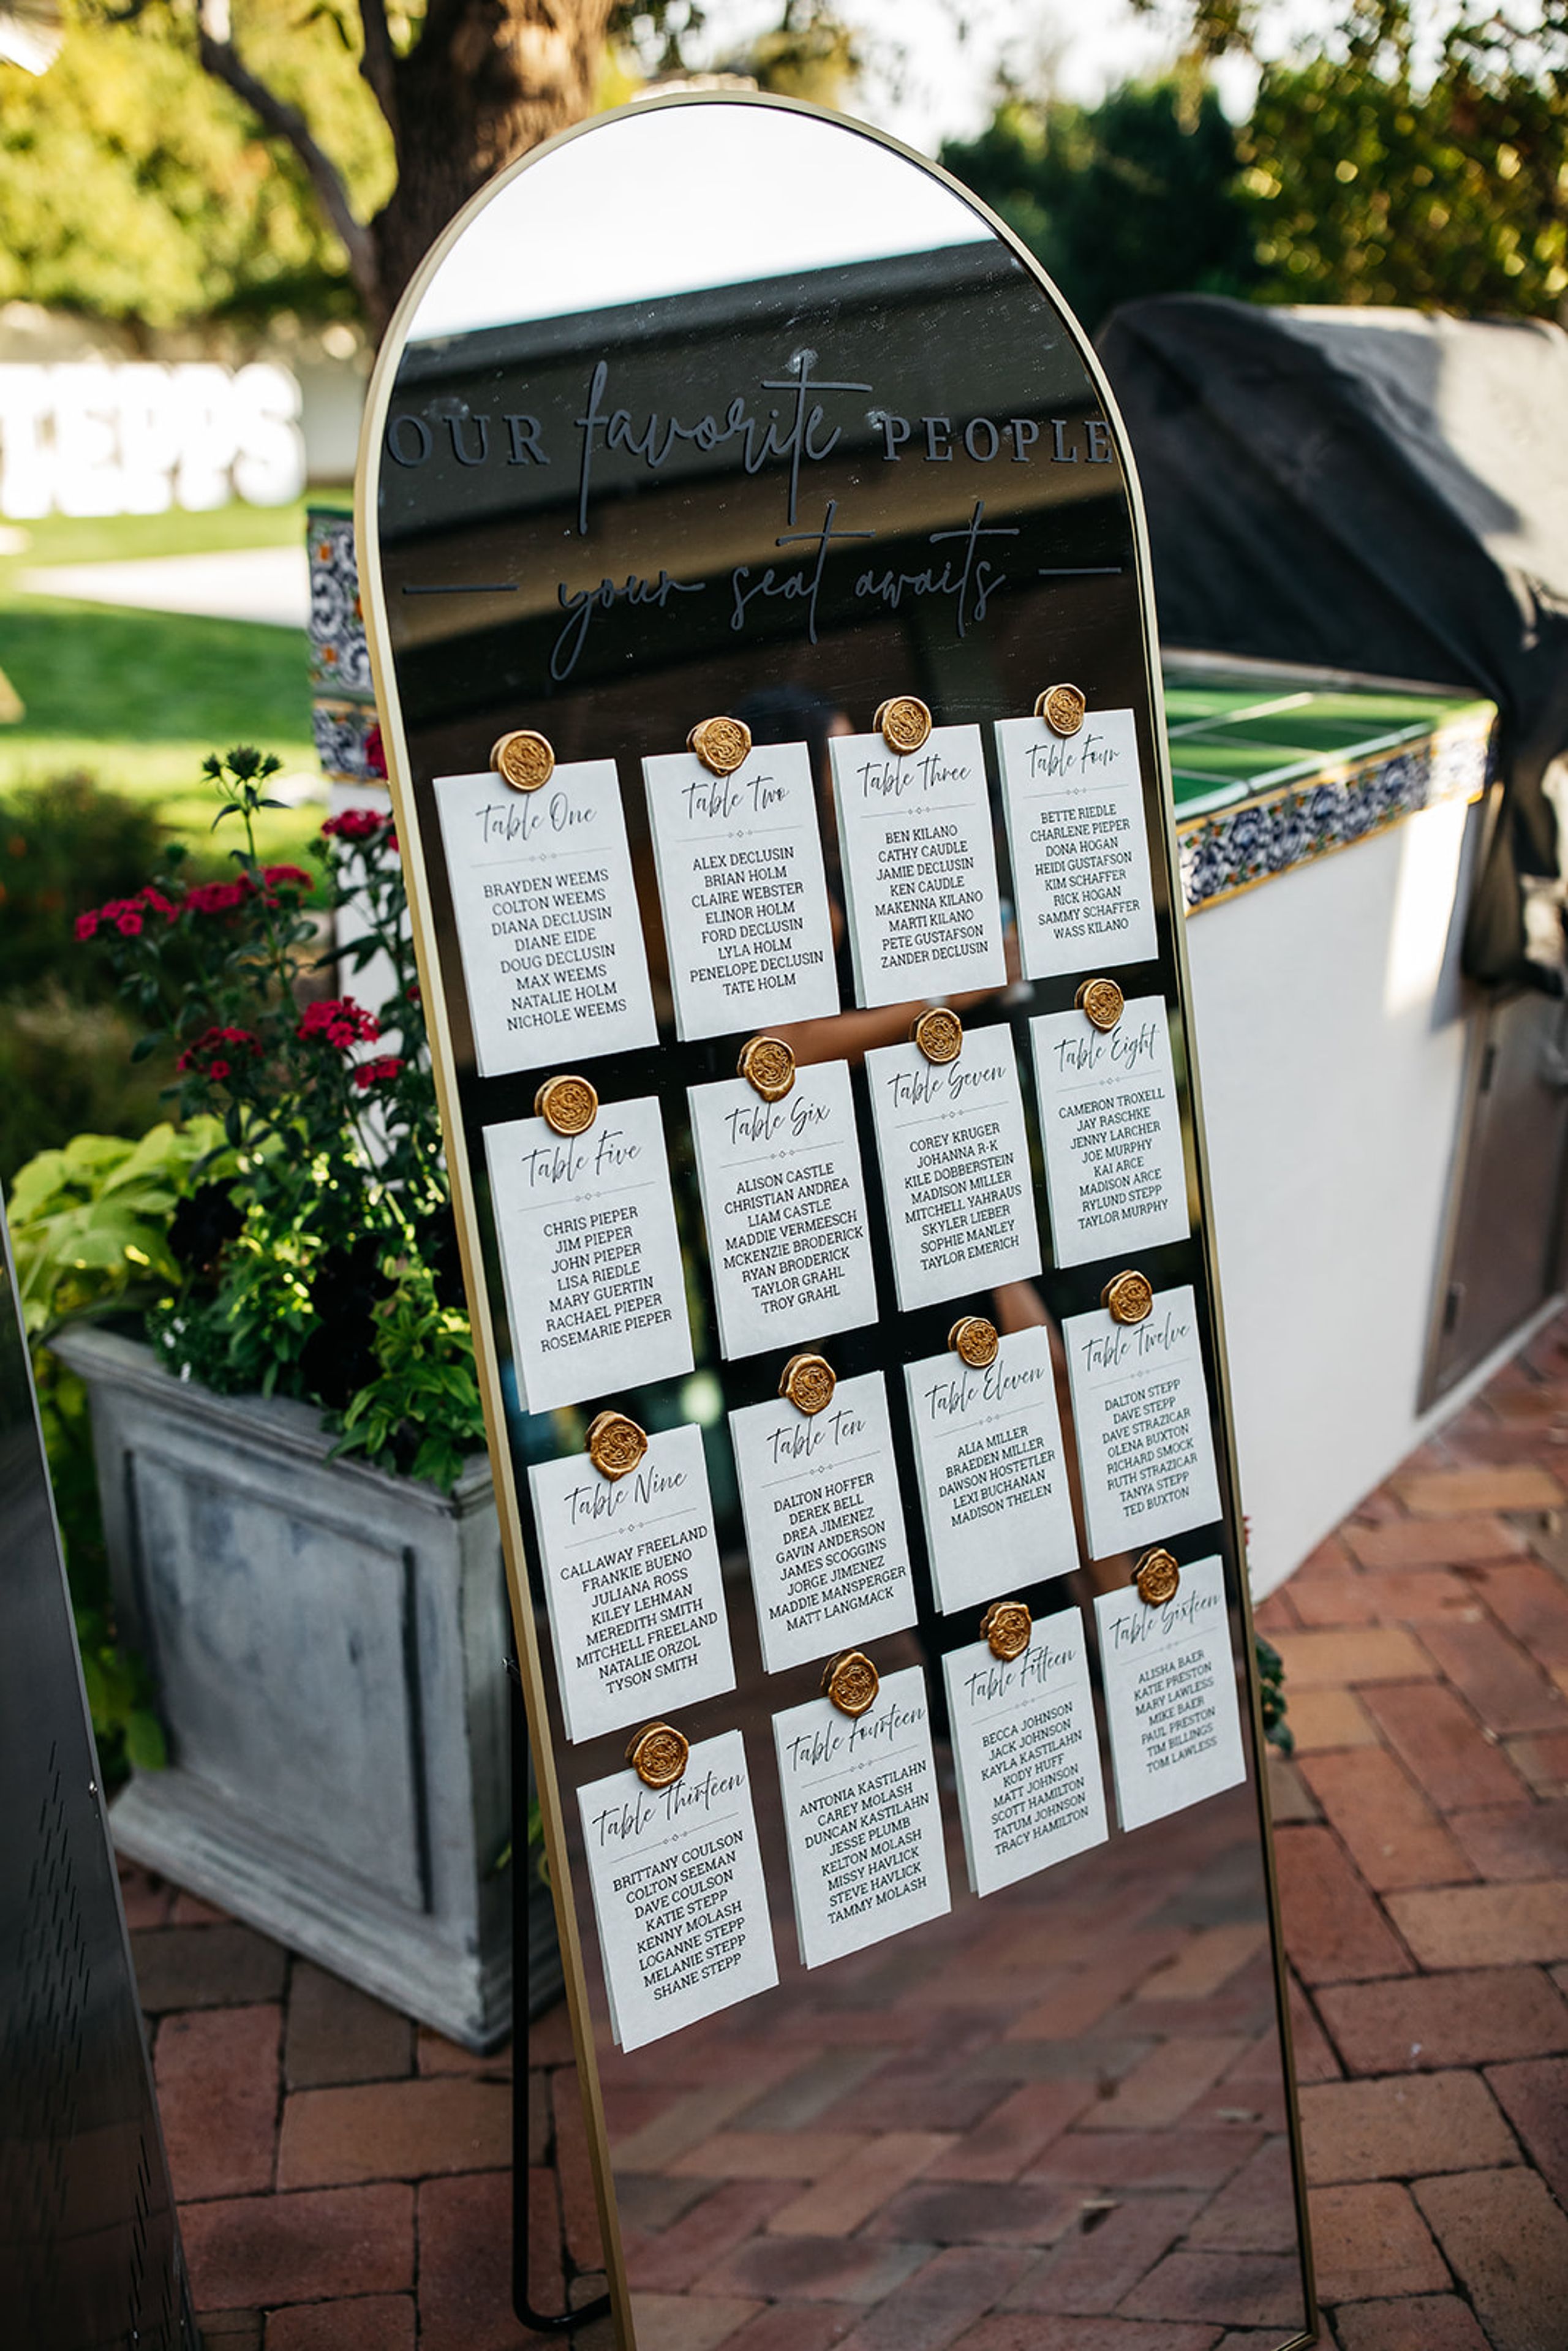 OUR favorite PEOPLE
your seat awaits
Table One
BRAYDEN WEEMS
COLTON WEEMS
DIANA DECLUSIN
DIANE EIDE
DOUG DECLUSIN
MAX WEEMS
NATALIE HOLM
NICHOLE WEEMS
Table Two
ALEX DECLUSIN
BRIAN HOLM
CLAIRE WEBSTER
ELINOR HOLM
FORD DECLUSIN
LYLA HOLM
PENELOPE DECLUSIN
TATE HOLM
Table Three
BEN KILANO
CATHY CAUDLE
JAMIE DECLUSIN
KEN CAUDLE
MAKENNA KILANO
MARTI KILANO
PETE GUSTAFSON
ZANDER DECLUSIN
Table Four
BETTE RIEDLE
CHARLENE PIEPER
DONA HOGAN
HEIDI GUSTAFSON
KIM SCHAFFER
RICK HOGAN
SAMMY SCHAFFER
WASS KILANO
Table Five
CHRIS PIEPER
JIM PIEPER
JOHN PIEPER
LISA RIEDLE
MARY GUERTIN
RACHAEL PIEPER
ROSEMARIE PIEPER
Table Six
ALISON CASTLE
CHRISTIAN ANDREA
LIAM CASTLE
MADDIE VERMEESCH
MCKENZIE BRODERICK
RYAN BRODERICK
TAYLOR GRAHL
TROY GRAHL
Table Seven
COREY KRUGER
JOHANNA R-K
KILE DOBBERSTEIN
MADISON MILLER
MITCHELL YAHRAUS
SKYLER LIEBER
SOPHIE MANLEY
TAYLOR EMERICH
Table Eight
CAMERON TROXELL
JAY RASCHKE
JENNY LARCHER
JOE MURPHY
KAI ARCE
MADISON ARCE
RYLUND STEPP
TAYLOR MURPHY
Table Nine
CALLAWAY FREELAND
FRANKIE BUENO
JULIANA ROSS
KILEY LEHMAN
MEREDITH SMITH
MITCHELL FREELAND
NATALIE ORZOL
TYSON SMITH
Table Ten
DALTON HOFFER
DEREK BELL
DREA JIMENEZ
GAVIN ANDERSON
JAMES SCOGGINS
JORGE JIMENEZ
MADDIE MANSPERGER
MATT LANGMACK
Table Eleven
ALIA MILLER
BRAEDEN MILLER
DAWSON HOSTETLER
LEXI BUCHANAN
MADISON THELEN
Table Twelve
DALTON STEPP
DAVE STEPP
DAVE STRAZICAR
OLENA BUXTON
RICHARD SMOCK
RUTH STRAZICAR
TANYA STEPP
TED BUXTON
Table Thirteen
BRITTANY COULSON
COLTON SEEMAN
DAVE COULSON
KATIE STEPP
KENNY MOLASH
LOGANNE STEPP
MELANIE STEPP
SHANE STEPP
Table Fourteen
ANTONIA KASTILAHN
CAREY MOLASH
DUNCAN KASTILAHN
JESSE PLUMB
KELTON MOLASH
MISSY HAVLICK
STEVE HAVLICK
TAMMY MOLASH
Table Fifteen
BECCA JOHNSON
JACK JOHNSON
KAYLA KASTILAHN
KODY HUFF
MATT JOHNSON
SCOTT HAMILTON
TATUM JOHNSON
TRACY HAMILTON
Table Sixteen
ALISHA BAER
KATIE PRESTON
MARY LAWLESS
MIKE BAER
PAUL PRESTON
TIM BILLINGS
TOM LAWLESS